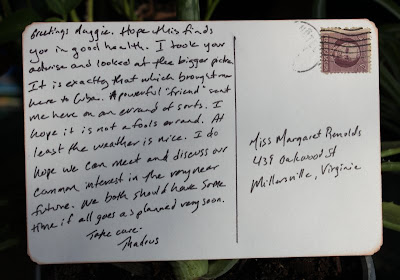 Greetings Maggie. Hope this finds
you in good health. I took your
advise and looked at the bigger picture.
It is exactly that which brought me
here to Cuba. A powerful "friend" sent
me here on an errand of sorts. I
hope it is not a fools errand. At
least the weather is nice. I do
hope we can meet and discuss our
common interest in the very near
future. We both should have some
time if all goes as planned very soon.
Take care.
Thadius
Miss Margaret Renolds
439 Oakwood St
Millersville, Virginia